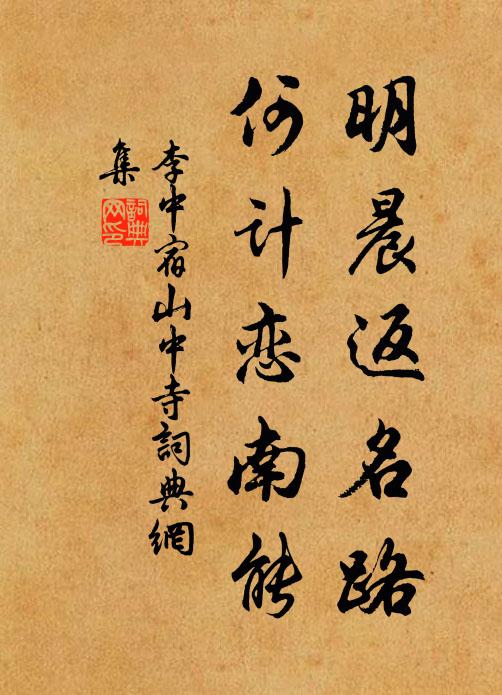 明晨返名路
何计恋南能
李中宿山中寺詞典網
集
詞典
网印